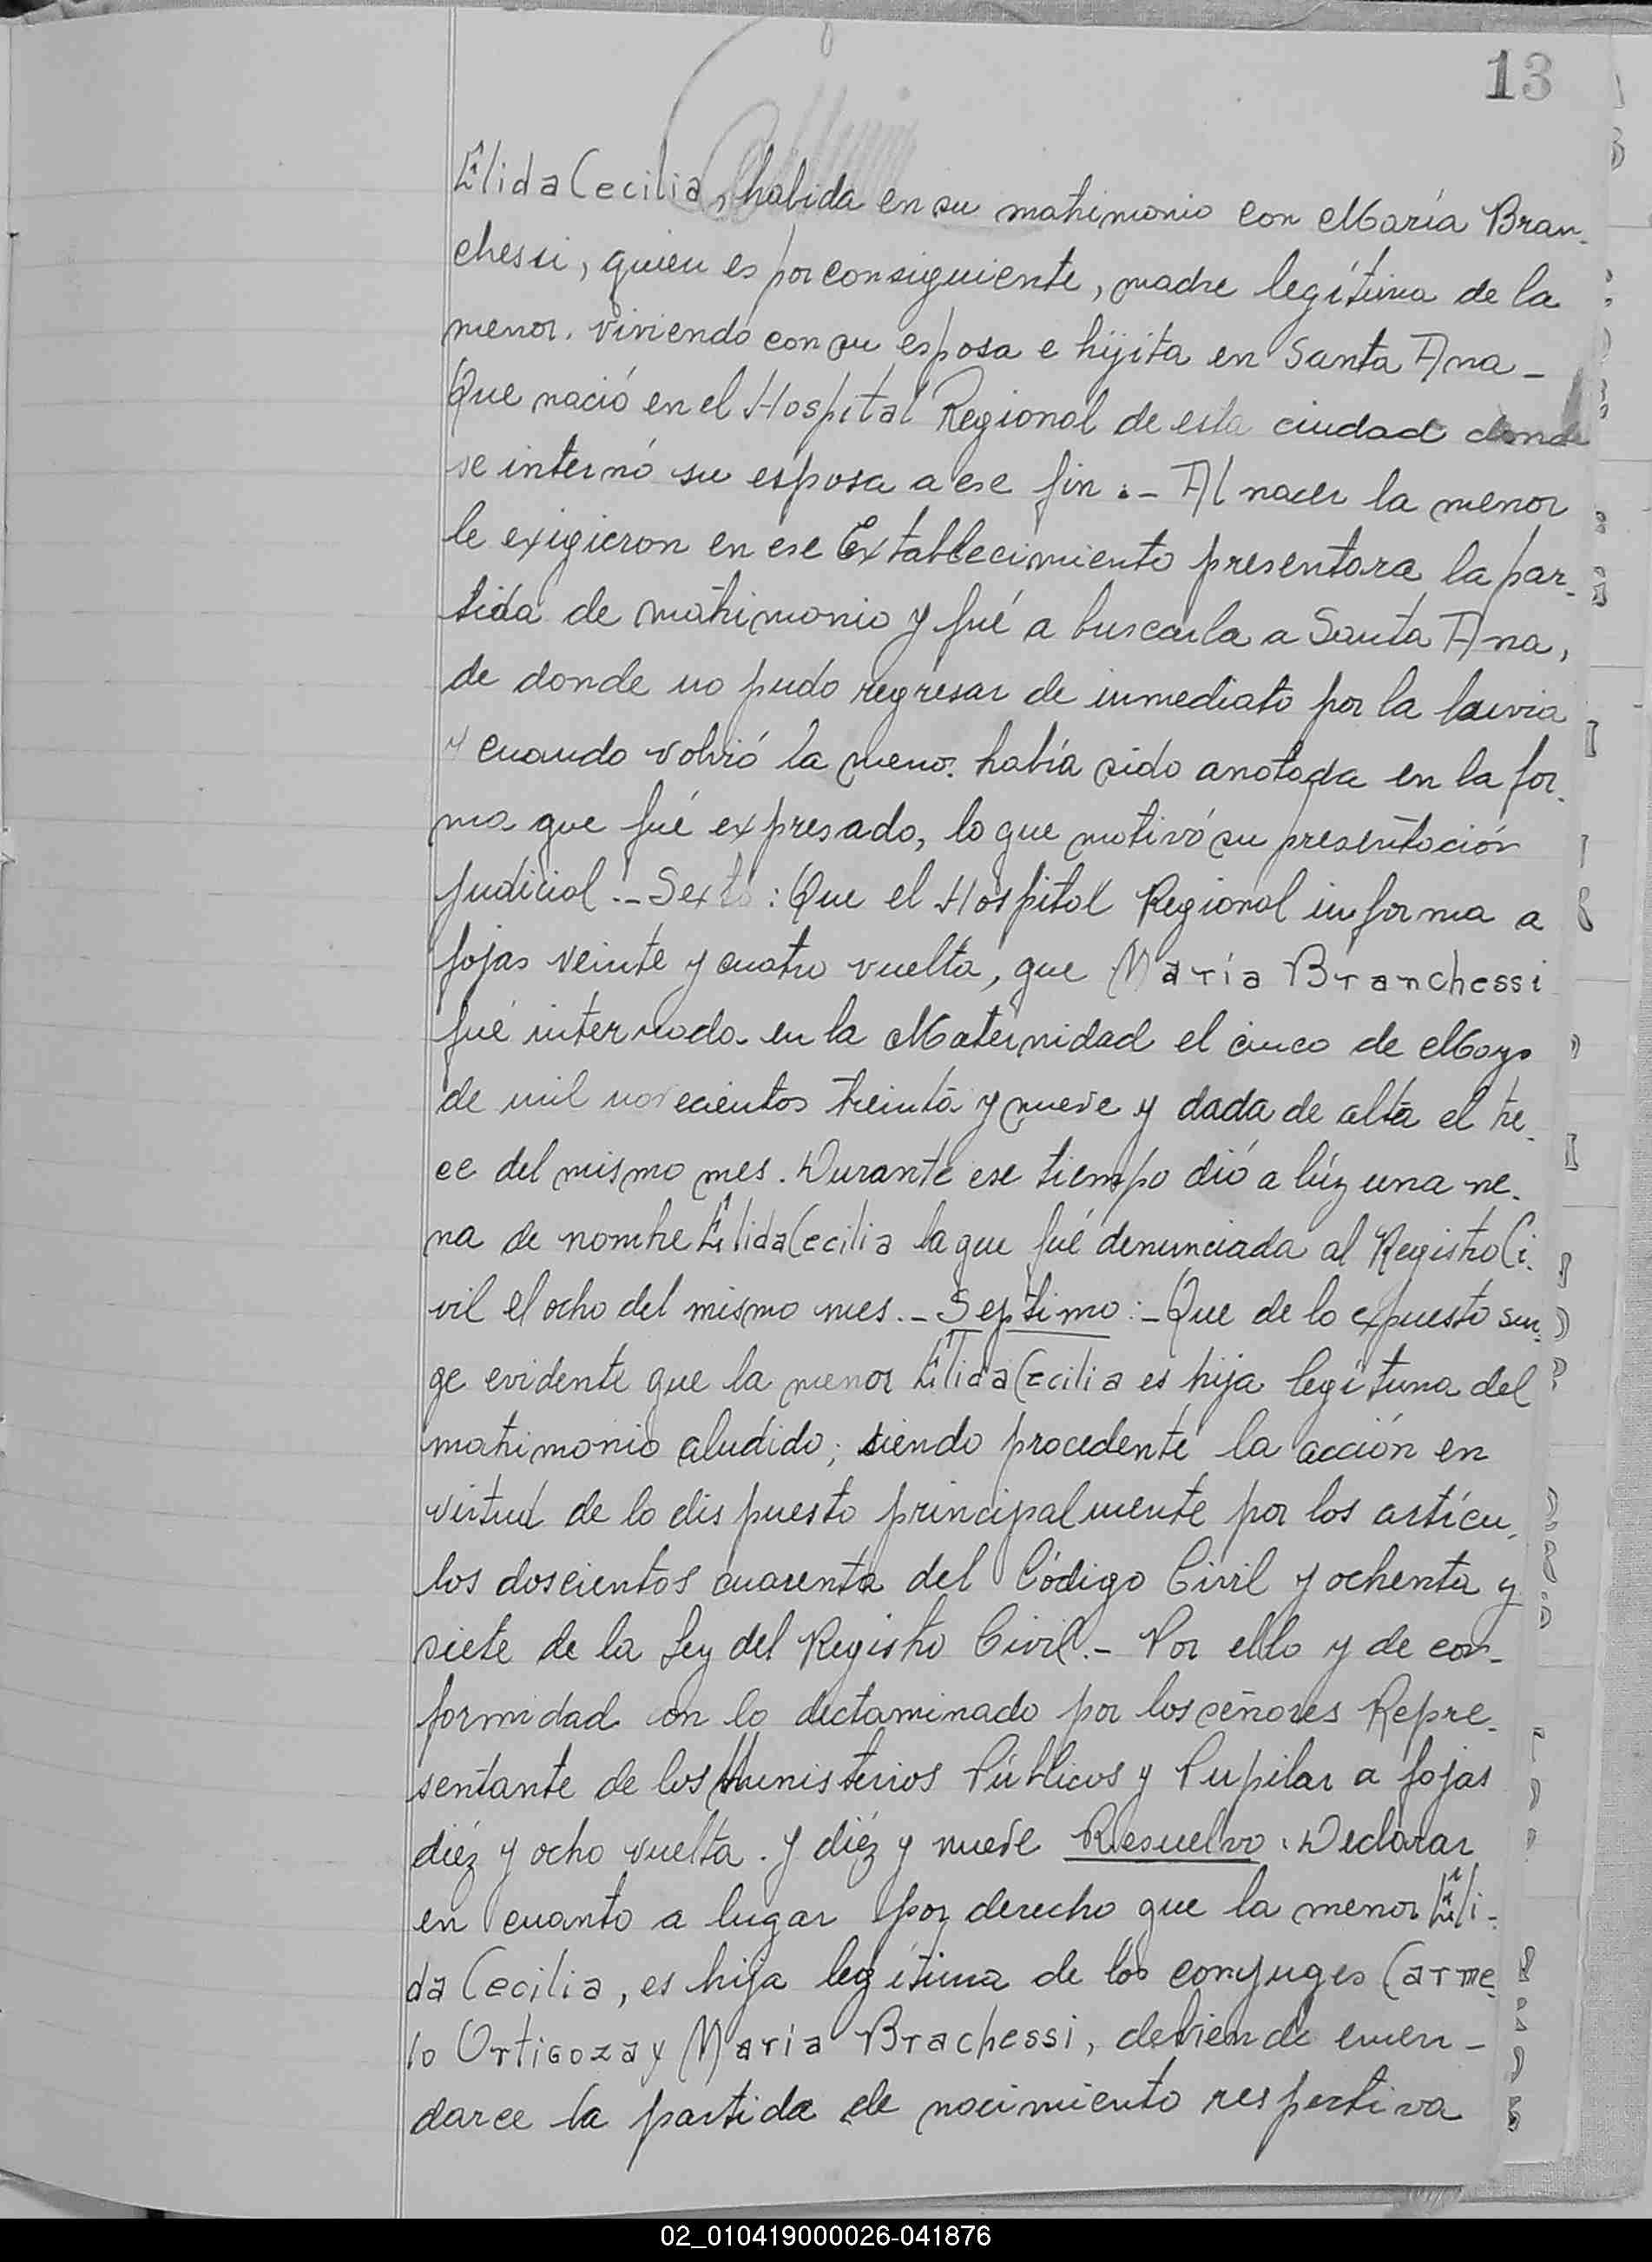 13
Élida Cecilia, habida en su matrimonio con María Bran-
chessi, quien es por consiguiente, madre legítima de la
menor. viviendo con su esposa e hijita en Santa Ana-
Que nació en el Hospital Regional de esta ciudad donde
se internó su esposa a ese fin.- Al nacer la menor
le exigieron en ese Extablecimiento presentara la par-
tida de matrimonio y fué a buscarla a Santa Ana,
de donde no pudo regresar de inmediato por la lluvia
y cuando volvió la menor había sido anotada en la for-
ma que fué expresado, lo que motivó su presentación
judicial.- Sexto: Que el Hospital Regional informa a
fojas veinte y cuatro vuelta, que María Branchessi
fué internada en la Maternidad el cinco de Mayo
de mil novecientos treinta y nueve y dada de alta el tre-
ce del mismo mes. Durante ese tiempo dió a lúz una ne-
na de nombre Élida Cecilia la que fué denunciada al Registro Ci-
vil el ocho del mismo mes.- Septimo:- Que de lo expuesto sur-
ge evidente que la menor Élida Cecilia es hija legítima del
matrimonio aludido; siendo procedente la acción en
virtud de lo dispuesto principalmente por los artícu-
los doscientos cuarenta del Código Civil y ochenta y
siete de la Ley del Registro Civil.- Por ello y de con-
formidad con lo dictaminado por los ceñores Repre-
sentante de los Ministerios Públicos y Pupilar a fojas
diéz y ocho vuelta. y diéz y nueve Resuelvo: Declarar
en cuanto a lugar por derecho que la menor Éli-
da Cecilia, es hija legítima de los conyuges Carme-
lo Ortigoza y María Brachessi, debiendo enmen-
darce la partida de nacimiento respectiva
02_010419000026-041876